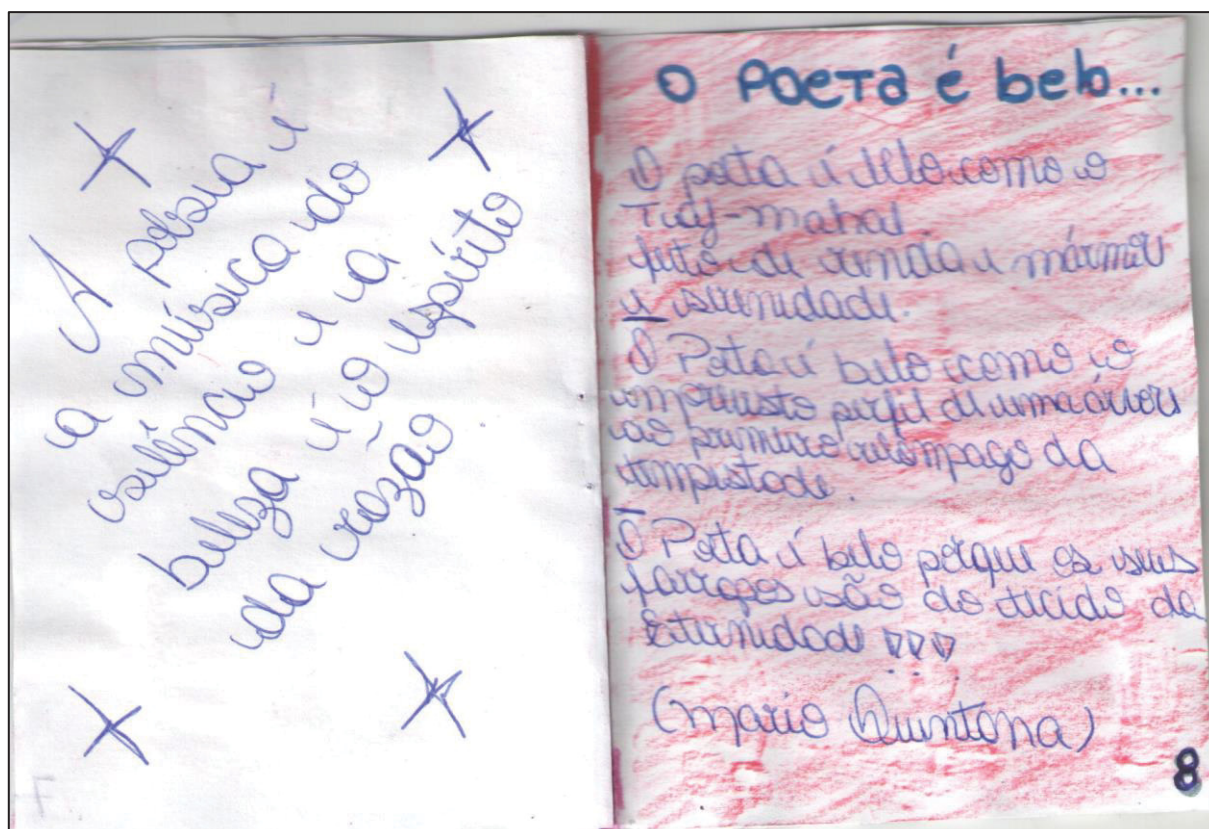 A poesia é
a música do
silêncio e a
beleza é o espírito
da razão.
O POETA é belo...
O poeta é belo como o
Taj-mahal.
feito de renda e mármore
e serenidade.
O Poeta é belo como o
imprevisto perfil de uma árvore
ao primeiro relâmpago da
tempestade.
O Poeta é belo porque os seus
farrapos são do tecido da
Eternidade !!!
(mario Quintana)
8